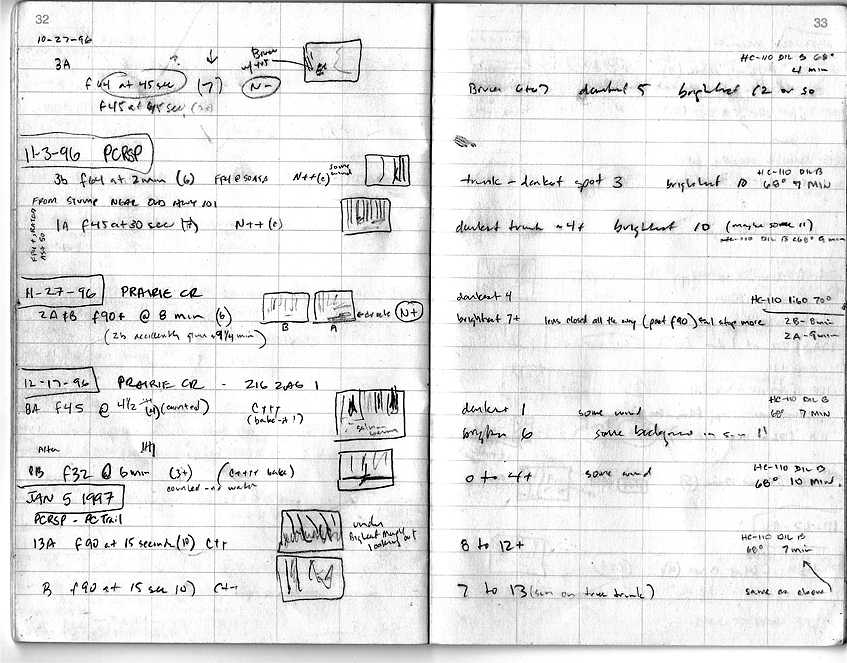 32
10-27-96
3A
f64 at 45 sec (-7) N-
f45 at 45 sec
11-3-96 PCRSP
3b f64 at 2 min (6) FP4 @ 50 ASA N++(c) some wind
FROM STUMP NEAR OLD HWY 101
1A f45 at 30 sec (7) N++(c)
FP4+ RATED ASA 50
11-27-96 PRAIRIE CR
2A+B f90+ @ 8 min (6)
B A N+
(2b accidently given 9 1/4 min)
12-17-96 PRAIRIE CR - ZIG ZAG 1
8A f45 @ 4 1/2 (counted) C+++
(bake-it!)
salmon
After
8B f32 @ 6 min (3+) (C++++ bake)
counted - no watch
JAN 5 1997
PCRSP - PC Trail
13A f90 at 15 seconds (10) C++
under Bigleaf Maple looking out
B f90 at 15 sec 10) C++
33
HC-110 DIL B 68°
4 min
darkest 5 brightest 12 or so
trunk - darkest spot 3 brightest 10
HC-110 DIL B
68° 7 MIN
darkest trunk 4+ brightest 10 (maybe some 11)
HC-110 DIL B @ 68° 9 min
darkest 4
HC-110 1:60 70°
brightest 7+ lens closed all the way (past f90) stop more
2B-8min
2A-9min
darkest 1 some wind
HC-110 DIL B
68° 7 MIN
brighter 6 some background in sun 11
0 to 4+ some wind
HC-110 DIL B
68° 10 MIN.
8 to 12+
HC-110 DIL B
68° 7min
7 to 13 (sun on tree trunk)
same as above